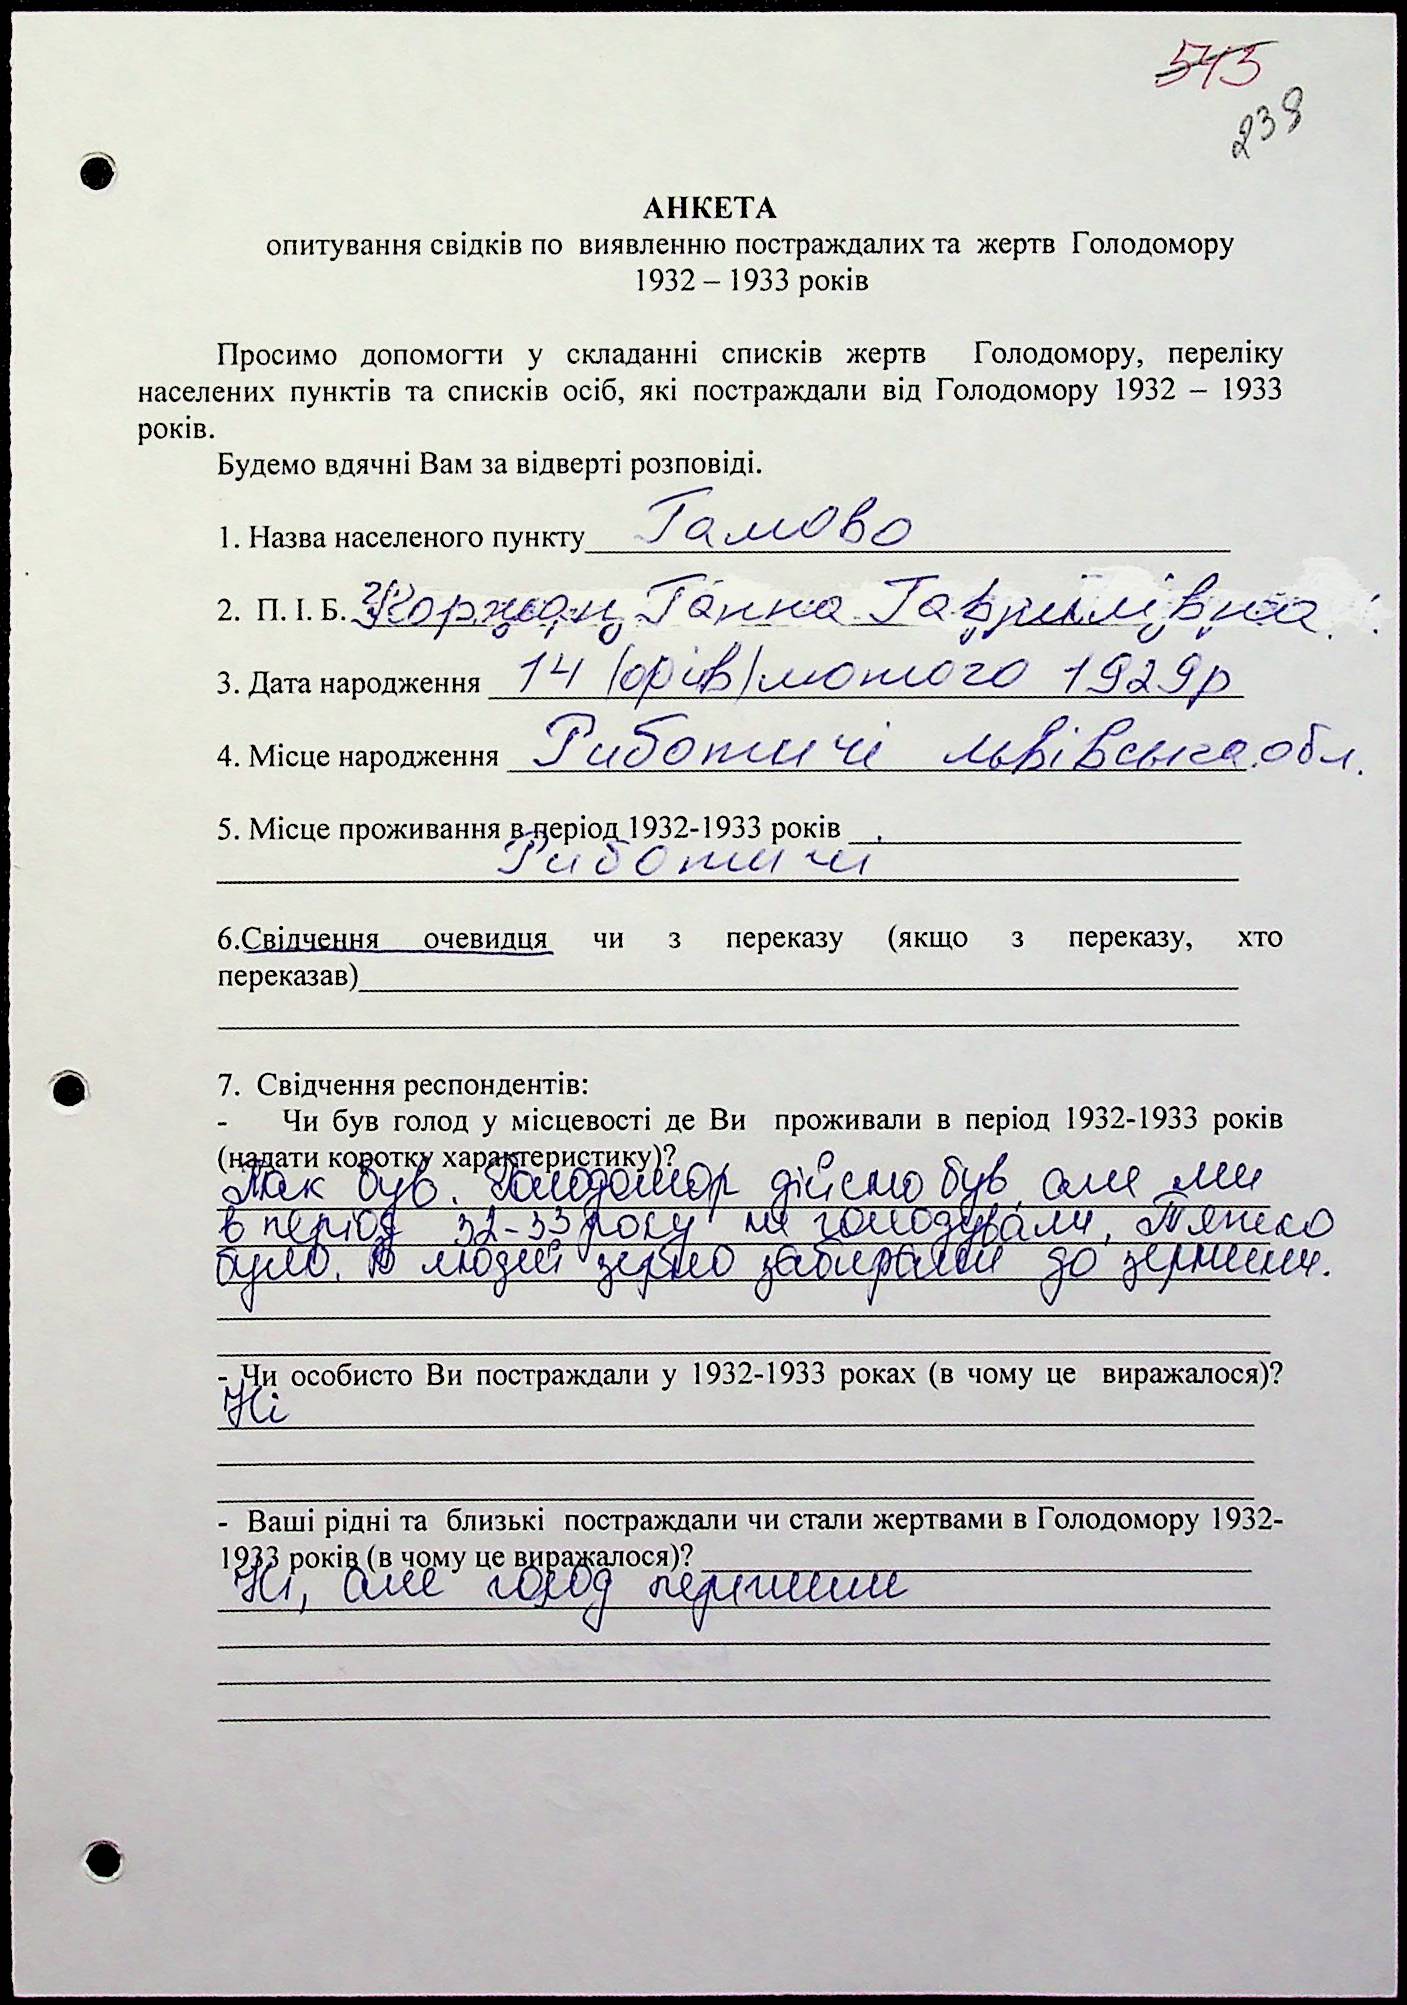 513
238
АНКЕТА
опитування свідків по виявленню постраждалих та жертв Голодомору
1932 – 1933 років
Просимо допомогти у складанні списків жертв Голодомору, переліку
населених пунктів та списків осіб, які постраждали від Голодомору 1932 – 1933
років.
Будемо вдячні Вам за відверті розповіді.
1. Назва населеного пункту Гамово
2. П. І. Б. Ганна Гаврилівна
3. Дата народження 14 лютого 1929р
4. Місце народження Риботичі львівська обл.
5. Місце проживання в період 1932-1933 років
Риботичи
6.Свідчення очевидця чи з переказу (якщо з переказу, хто
переказав)
7. Свідчення респондентів:
- Чи був голод у місцевості де Ви проживали в період 1932-1933 років
(надати коротку характеристику)?
Так був. Голодомор дійсно був, але ми
в період 32-33 року не голодували, Тяжко
було. В людей зерно забирали до зернини.
- Чи особисто Ви постраждали у 1932-1933 роках (в чому це виражалося)?
Ні
- Ваші рідні та близькі постраждали чи стали жертвами в Голодомору 1932-
1933 років (в чому це виражалося)?
Ні, але голод пережили